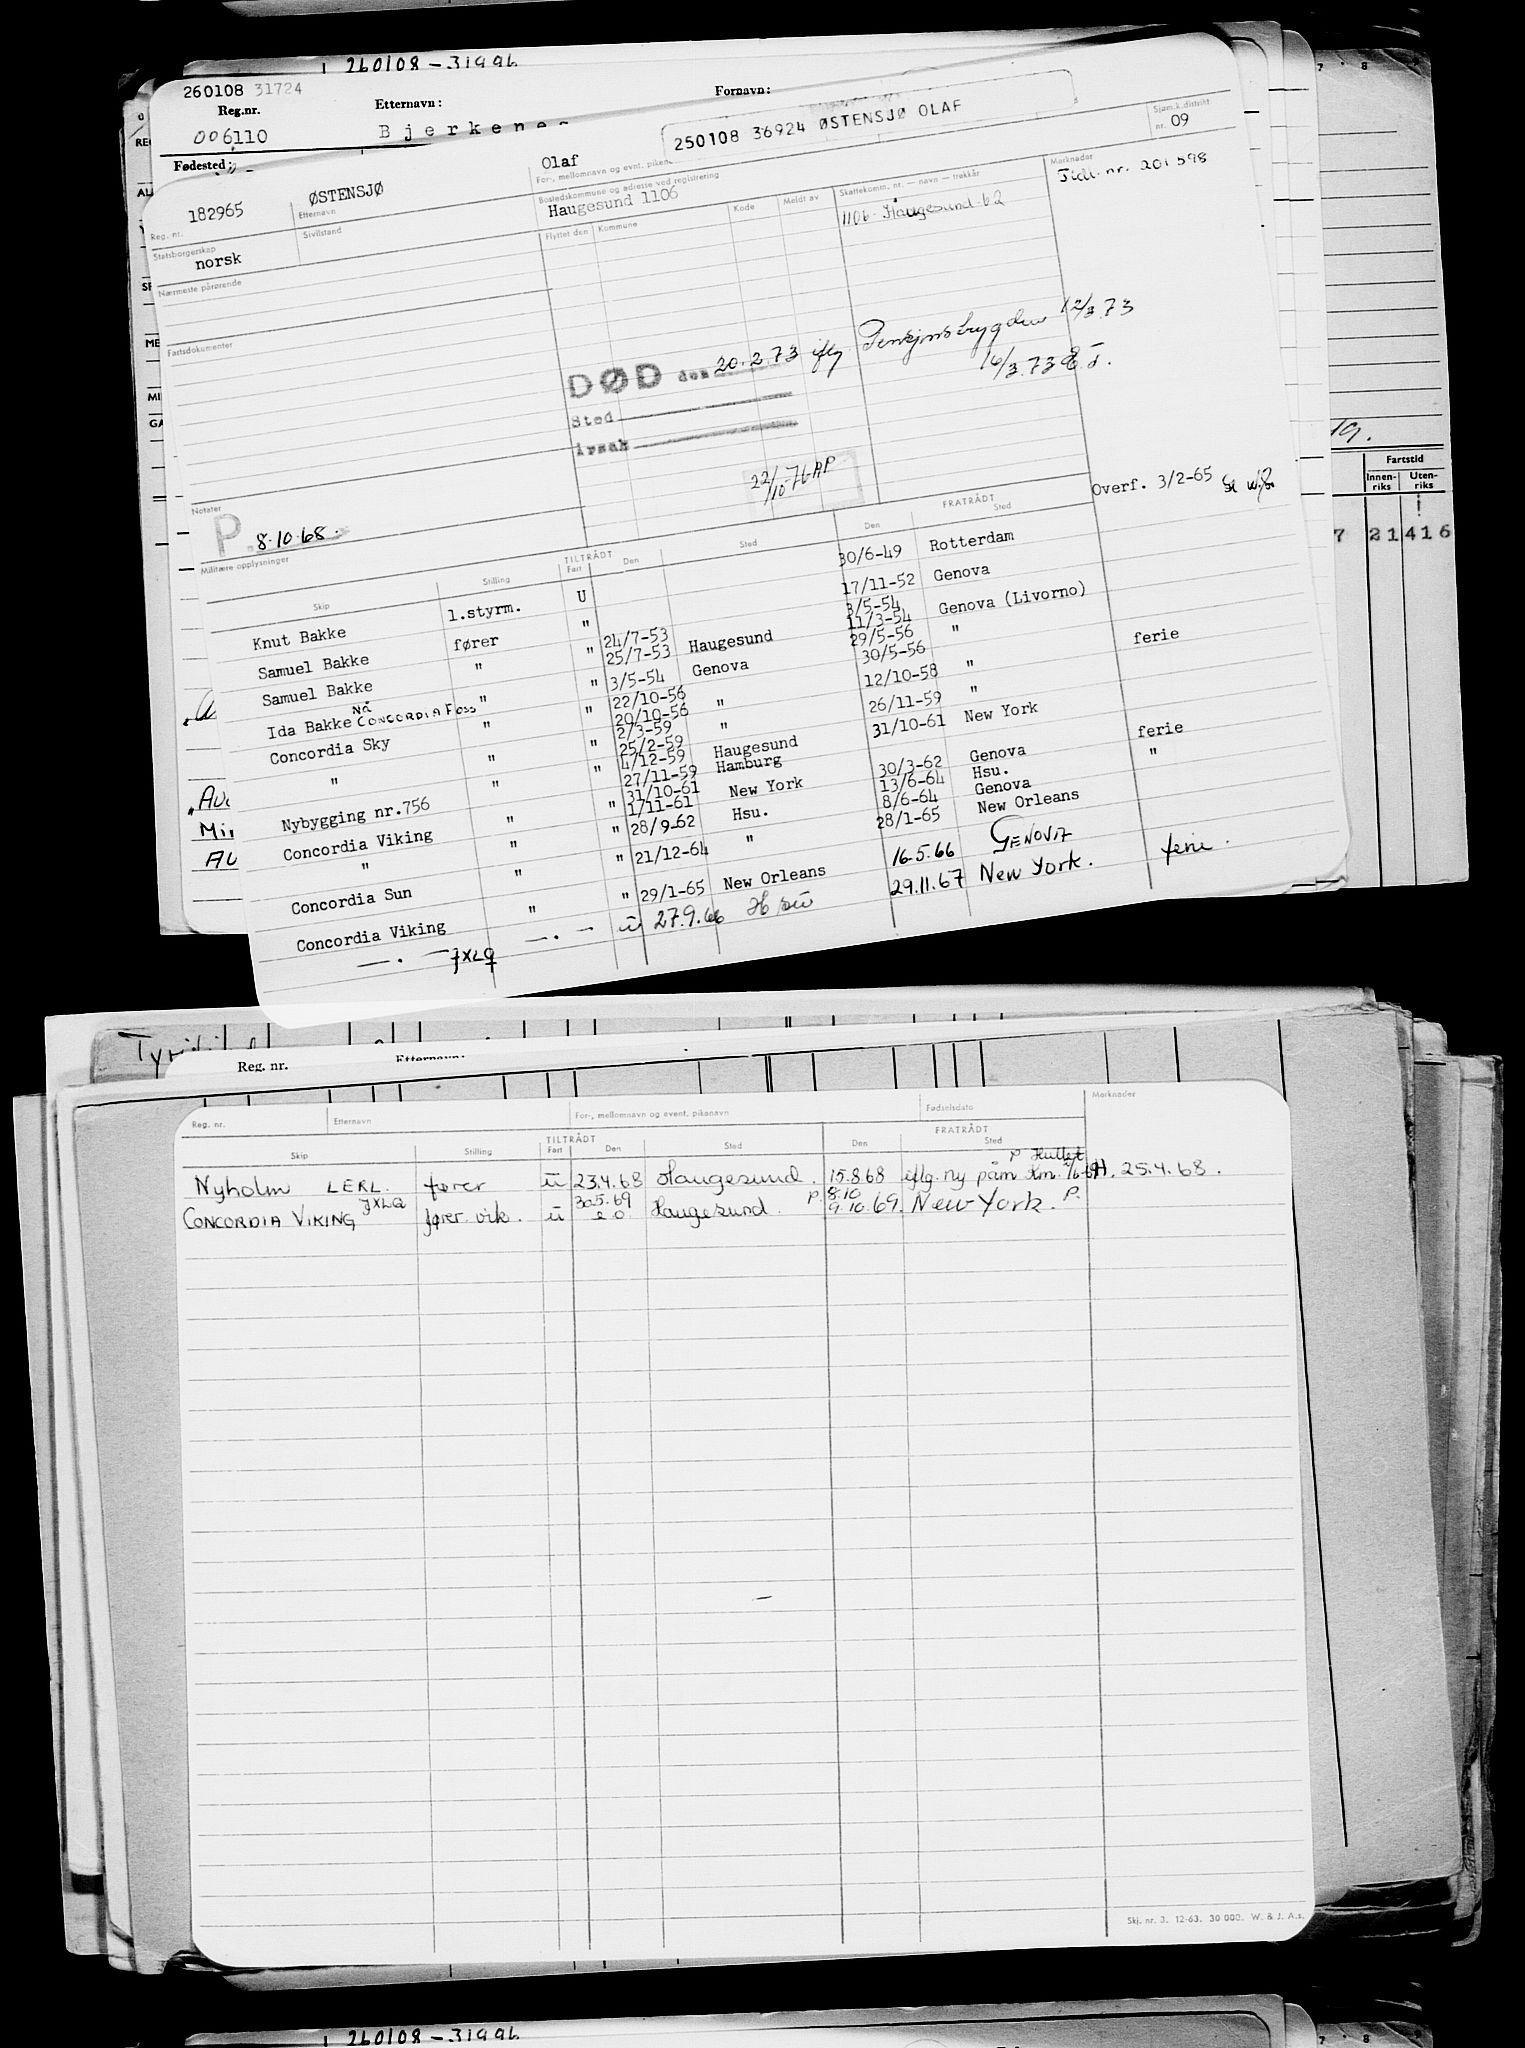 260108 - 31996
260108 31724
Reg.nr. Etternavn: Fornavn:
006110 Bjerkenes
Fødested:
250108 36924 ØSTENSJØ OLAF
Sjøm.k.distrikt
nr. 09
182965 ØSTENSJØ Olaf
Reg. nr. Etternavn For-, mellomnavn og evnt. piken
Bostedskommune og adresse ved registrering
Haugesund 1106
Statsborgerskap Sivilstand Flyttet den Kommune Kode Meldt av Skattekomm. nr. — navn — trekkår Merknader
norsk 1106 Haugesund 62 Tidl. nr. 201598
Nærmeste pårørende
Fartsdokumenter
DØD den 20.2.73 iflg Pensjonstrygden 12/3.73
16/3.73
Sted
Årsak
22/10-76 AP
Notater
P. 8.10.68.
Militære opplysninger
Overf. 3/2-65
TILTRÅDT FRATRÅDT
Skip Stilling Fart Den Sted Den Sted
Knut Bakke 1.styrm. U 30/6-49 Rotterdam
Samuel Bakke fører " 17/11-52 Genova
Samuel Bakke " " 24/7-53 25/7-53 Haugesund 3/5-54 11/3-54 Genova (Livorno)
Ida Bakke Nå CONCORDIA FOSS " " 3/5-54 Genova 29/5-56 30/5-56 " ferie
Concordia Sky " " 22/10-56 20/10-56 " 12/10-58 "
" " " 2/3-59 25/2-59 " 26/11-59 "
Nybygging nr.756 " " 4/12-59 27/11-59 Haugesund Hamburg 31/10-61 New York
Concordia Viking " " 31/10-61 1/11-61 New York 30/3-62 Genova ferie
" " " 28/9-62 Hsu. 13/6-64 8/6-64 Hsu. Genova "
Concordia Sun " " 21/12-64 " 28/1-65 New Orleans
Concordia Viking " " 29/1-65 New Orleans 16.5.66 GENOVA
— . — JXLQ — . — u 27.9.66 Hsu 29.11.67 New York. ferie.
Fartstid
Innen-riks Uten-riks
7 21 416
Reg. nr. Etternavn:
Reg. nr. Etternavn For-, mellomnavn og event. pikenavn Fødselsdato Merknader
TILTRÅDT FRATRÅDT
Skip Stilling Fart Den Sted Den Sted
Nyholm LERL fører u 23.4.68 Haugesund. 15.8.68 iflg. ny påm. H. 25.4.68.
CONCORDIA VIKING JXLQ fører vik. u 30.5.69 Haugesund. P. 8.10 9.10.69. New York. P.
Skj. nr. 3. 12-63. 30 000. W. & J. A.s.
260108 - 31996